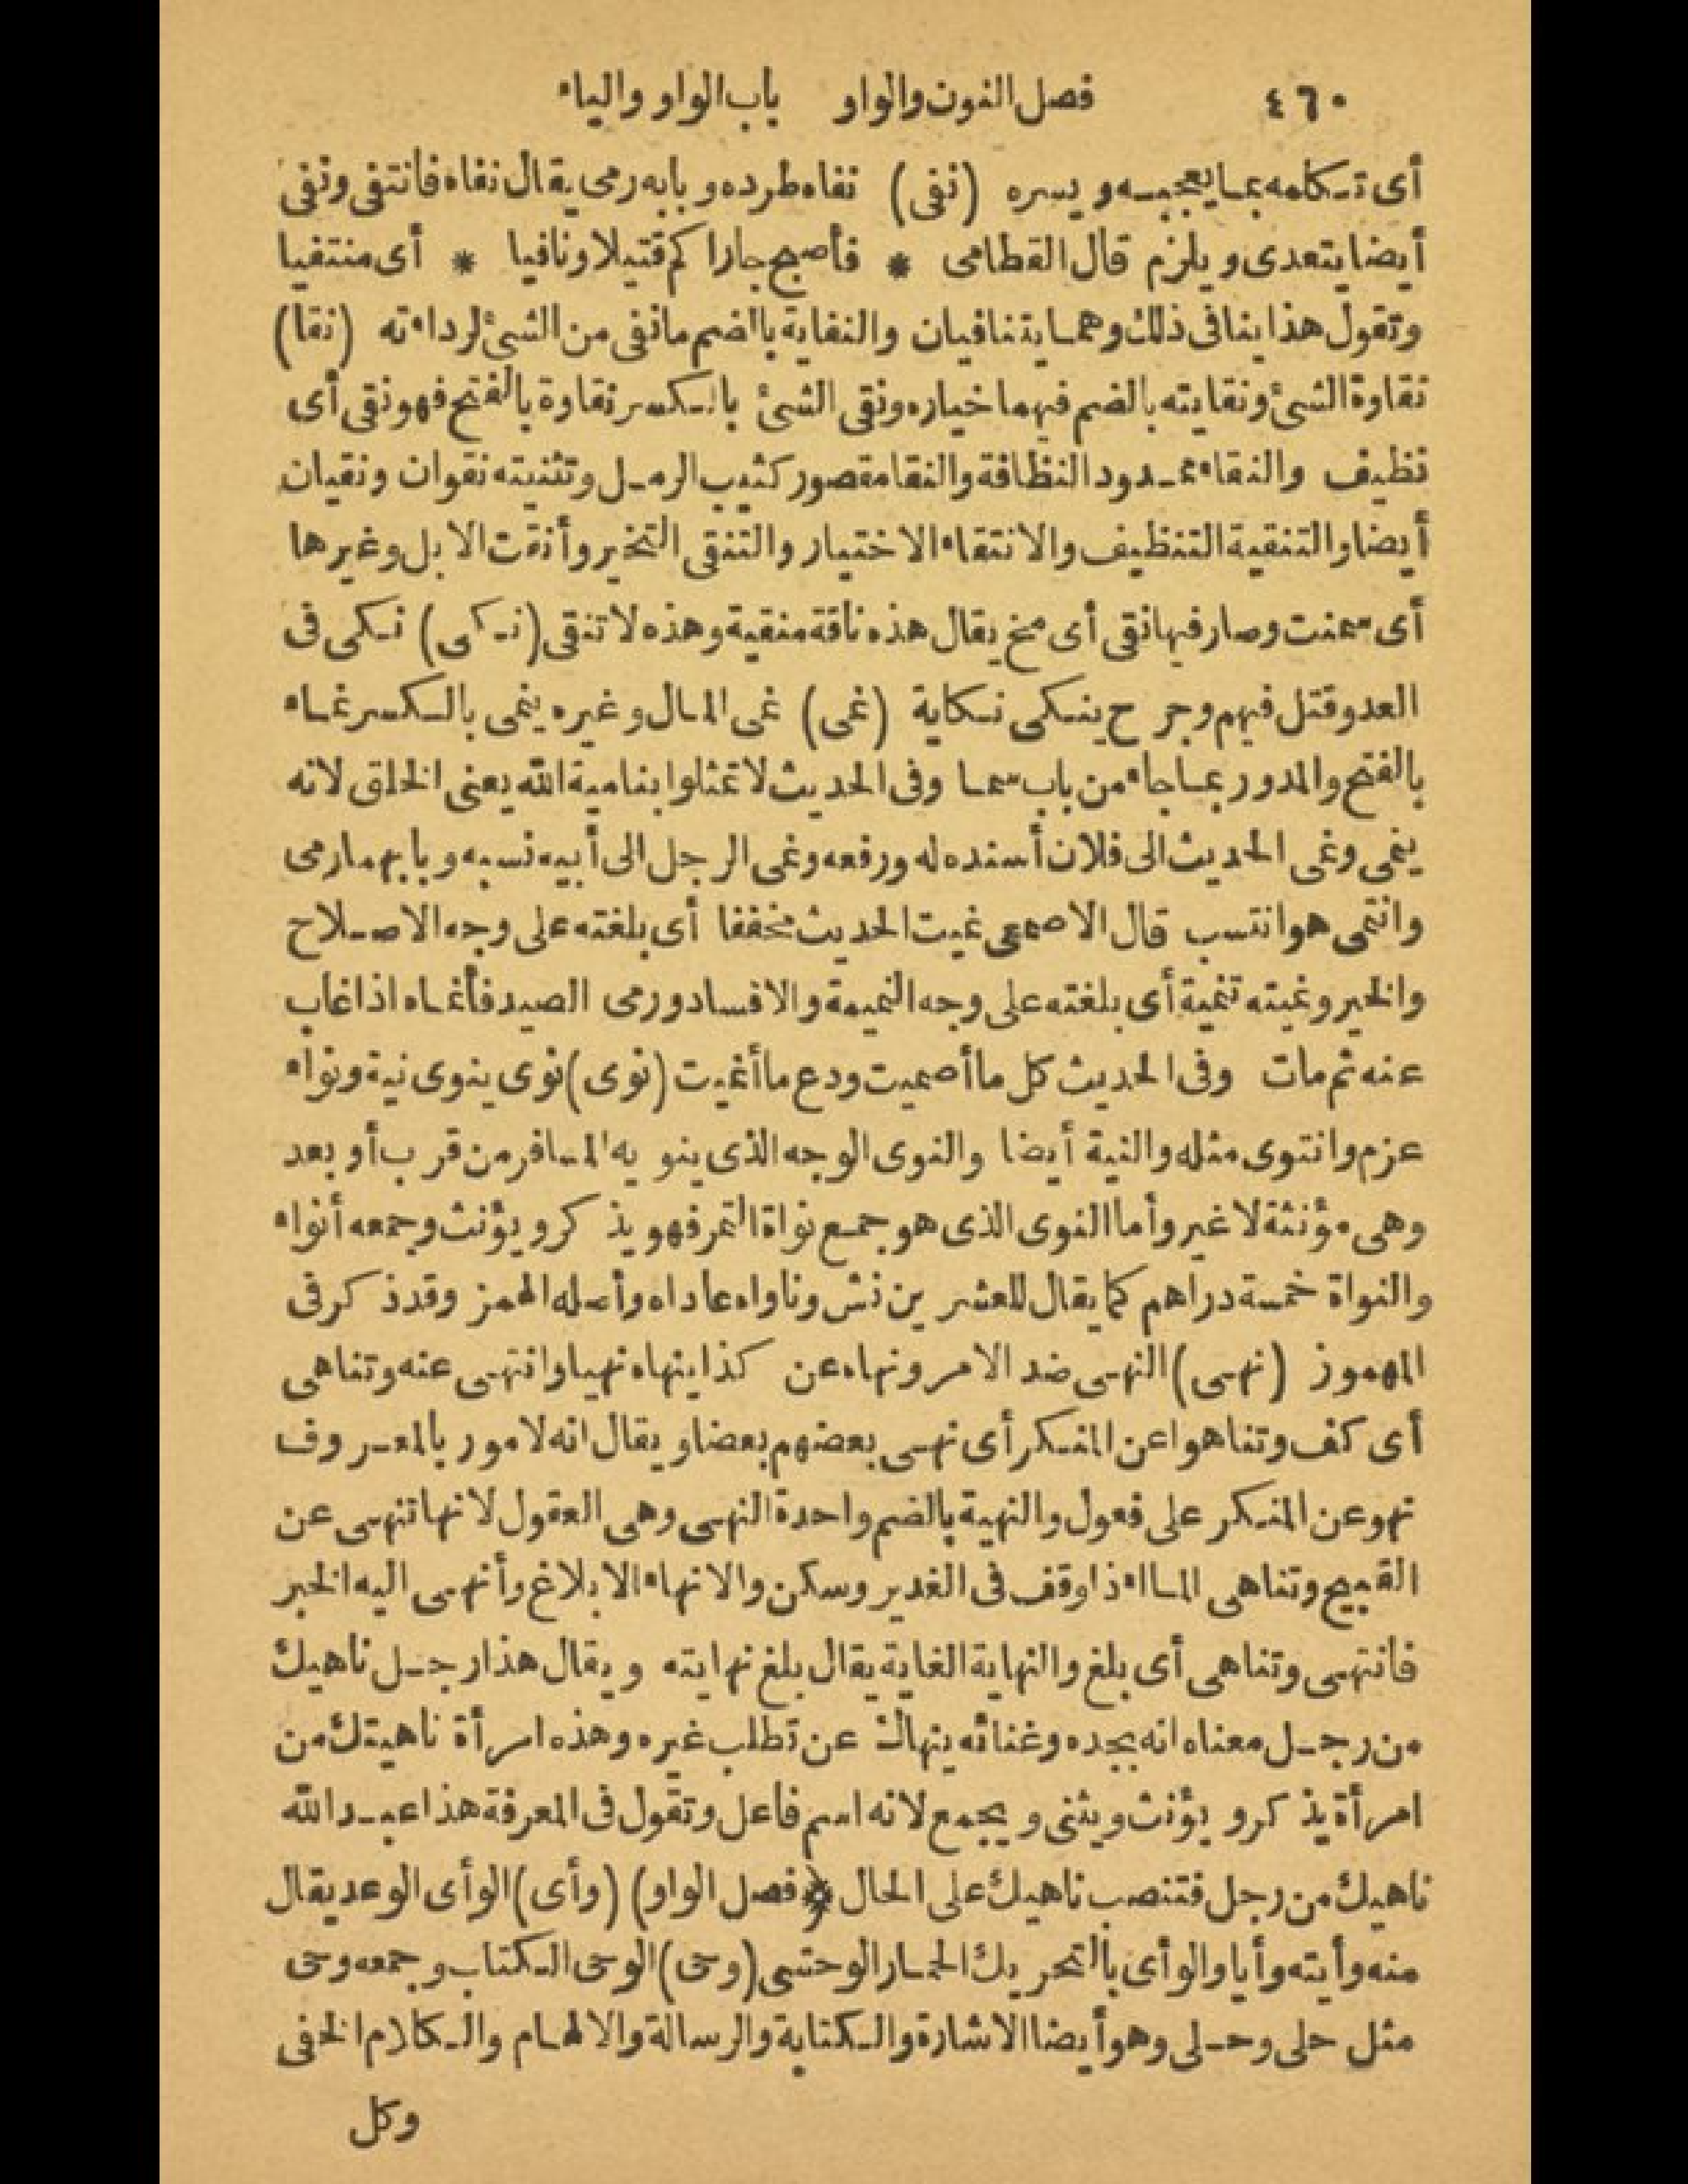 ٤٦٠ فصل النون والواو باب الواو والياء
أى تكلمه بما يعجبه ويسره (نفى) نفاه طرده وبابه رمى يقال نفاه فانتفى ونفى
أيضا يتعدى ويلزم قال القطامى * فأصبح جاراكم قتيلا ونافيا * أى منتفيا
وتقول هذا ينافى ذلك وهما يتنافيان والنفاية بالضم مانفى من الشئ لرداءته (نقا)
نقاوة الشئ ونقايته بالضم فيهما خياره ونقى الشئ بالكسر نقاوة بالفتح فهو نقى أى
نظيف والنقاء ممدود النظافة والنقا مقصور كثيب الرمل وتثنيته نقوان ونقيان
أيضا والتنقية التنظيف والانتقاء الاختيار والتنقى التخير وأنقت الابل وغيرها
أى سمنت وصار فيها نقى أى مخ يقال هذه ناقة منقية وهذه لا تنقى (نكى) نكى فى
العدو قتل فيهم وجرح ينكى نكاية (نمى) نمى المال وغيره ينمى بالكسر نماء
بالفتح والمد وربما جاء من باب سما وفى الحديث لا تمثلوا بنامية الله يعنى الخلق لانه
ينمى ونمى الحديث الى فلان أسنده له ورفعه ونمى الرجل الى أبيه نسبه وبابهما رمى
وانتمى هو انتسب قال الاصمعى نميت الحديث مخففا أى بلغته على وجه الاصلاح
والخير ونميته تنمية أى بلغته على وجه النميمة والافساد ورمى الصيد فأنماه اذا غاب
عنه ثم مات وفى الحديث كل ما أصميت ودع ما أنميت (نوى) نوى ينوى نية ونواة
عزم وانتوى مثله والنية أيضا والنوى الوجه الذى ينويه المسافر من قرب أو بعد
وهى مؤنثة لا غير وأما النوى الذى هو جمع نواة التمر فهو يذكر ويؤنث وجمعه أنواء
والنواة خمسة دراهم كما يقال للعشرين نش وناواه عاداه وأصله الهمز وقد ذكر فى
المهموز (نهى) النهى ضد الامر ونهاه عن كذا ينهاه نهيا وانتهى عنه وتناهى
أى كف وتناهوا عن المنكر أى نهى بعضهم بعضا ويقال انه لامور بالمعروف
نهو عن المنكر على فعول والنهية بالضم واحدة النهى وهى العقول لانها تنهى عن
القبيح وتناهى الماء اذا وقف فى الغدير وسكن والانهاء الابلاغ وأنهى اليه الخبر
فانتهى وتناهى أى بلغ والنهاية الغاية يقال بلغ نهايته ويقال هذا رجل ناهيك
من رجل معناه انه بجده وغنائه ينهاك عن تطلب غيره وهذه امرأة ناهيتك من
امرأة يذكر ويؤنث ويثنى ويجمع لانه اسم فاعل وتقول فى المعرفة هذا عبد الله
ناهيك من رجل فتنصب ناهيك على الحال ﴿فصل الواو) (وأى) الوأى الوعد يقال
منه وأيته وأيا والوأى بالتحريك الحمار الوحشى (وحى) الوحى الكتاب وجمعه وحى
مثل حلى وحلى وهو أيضا الاشارة والكتابة والرسالة والالهام والكلام الخفى
وكل